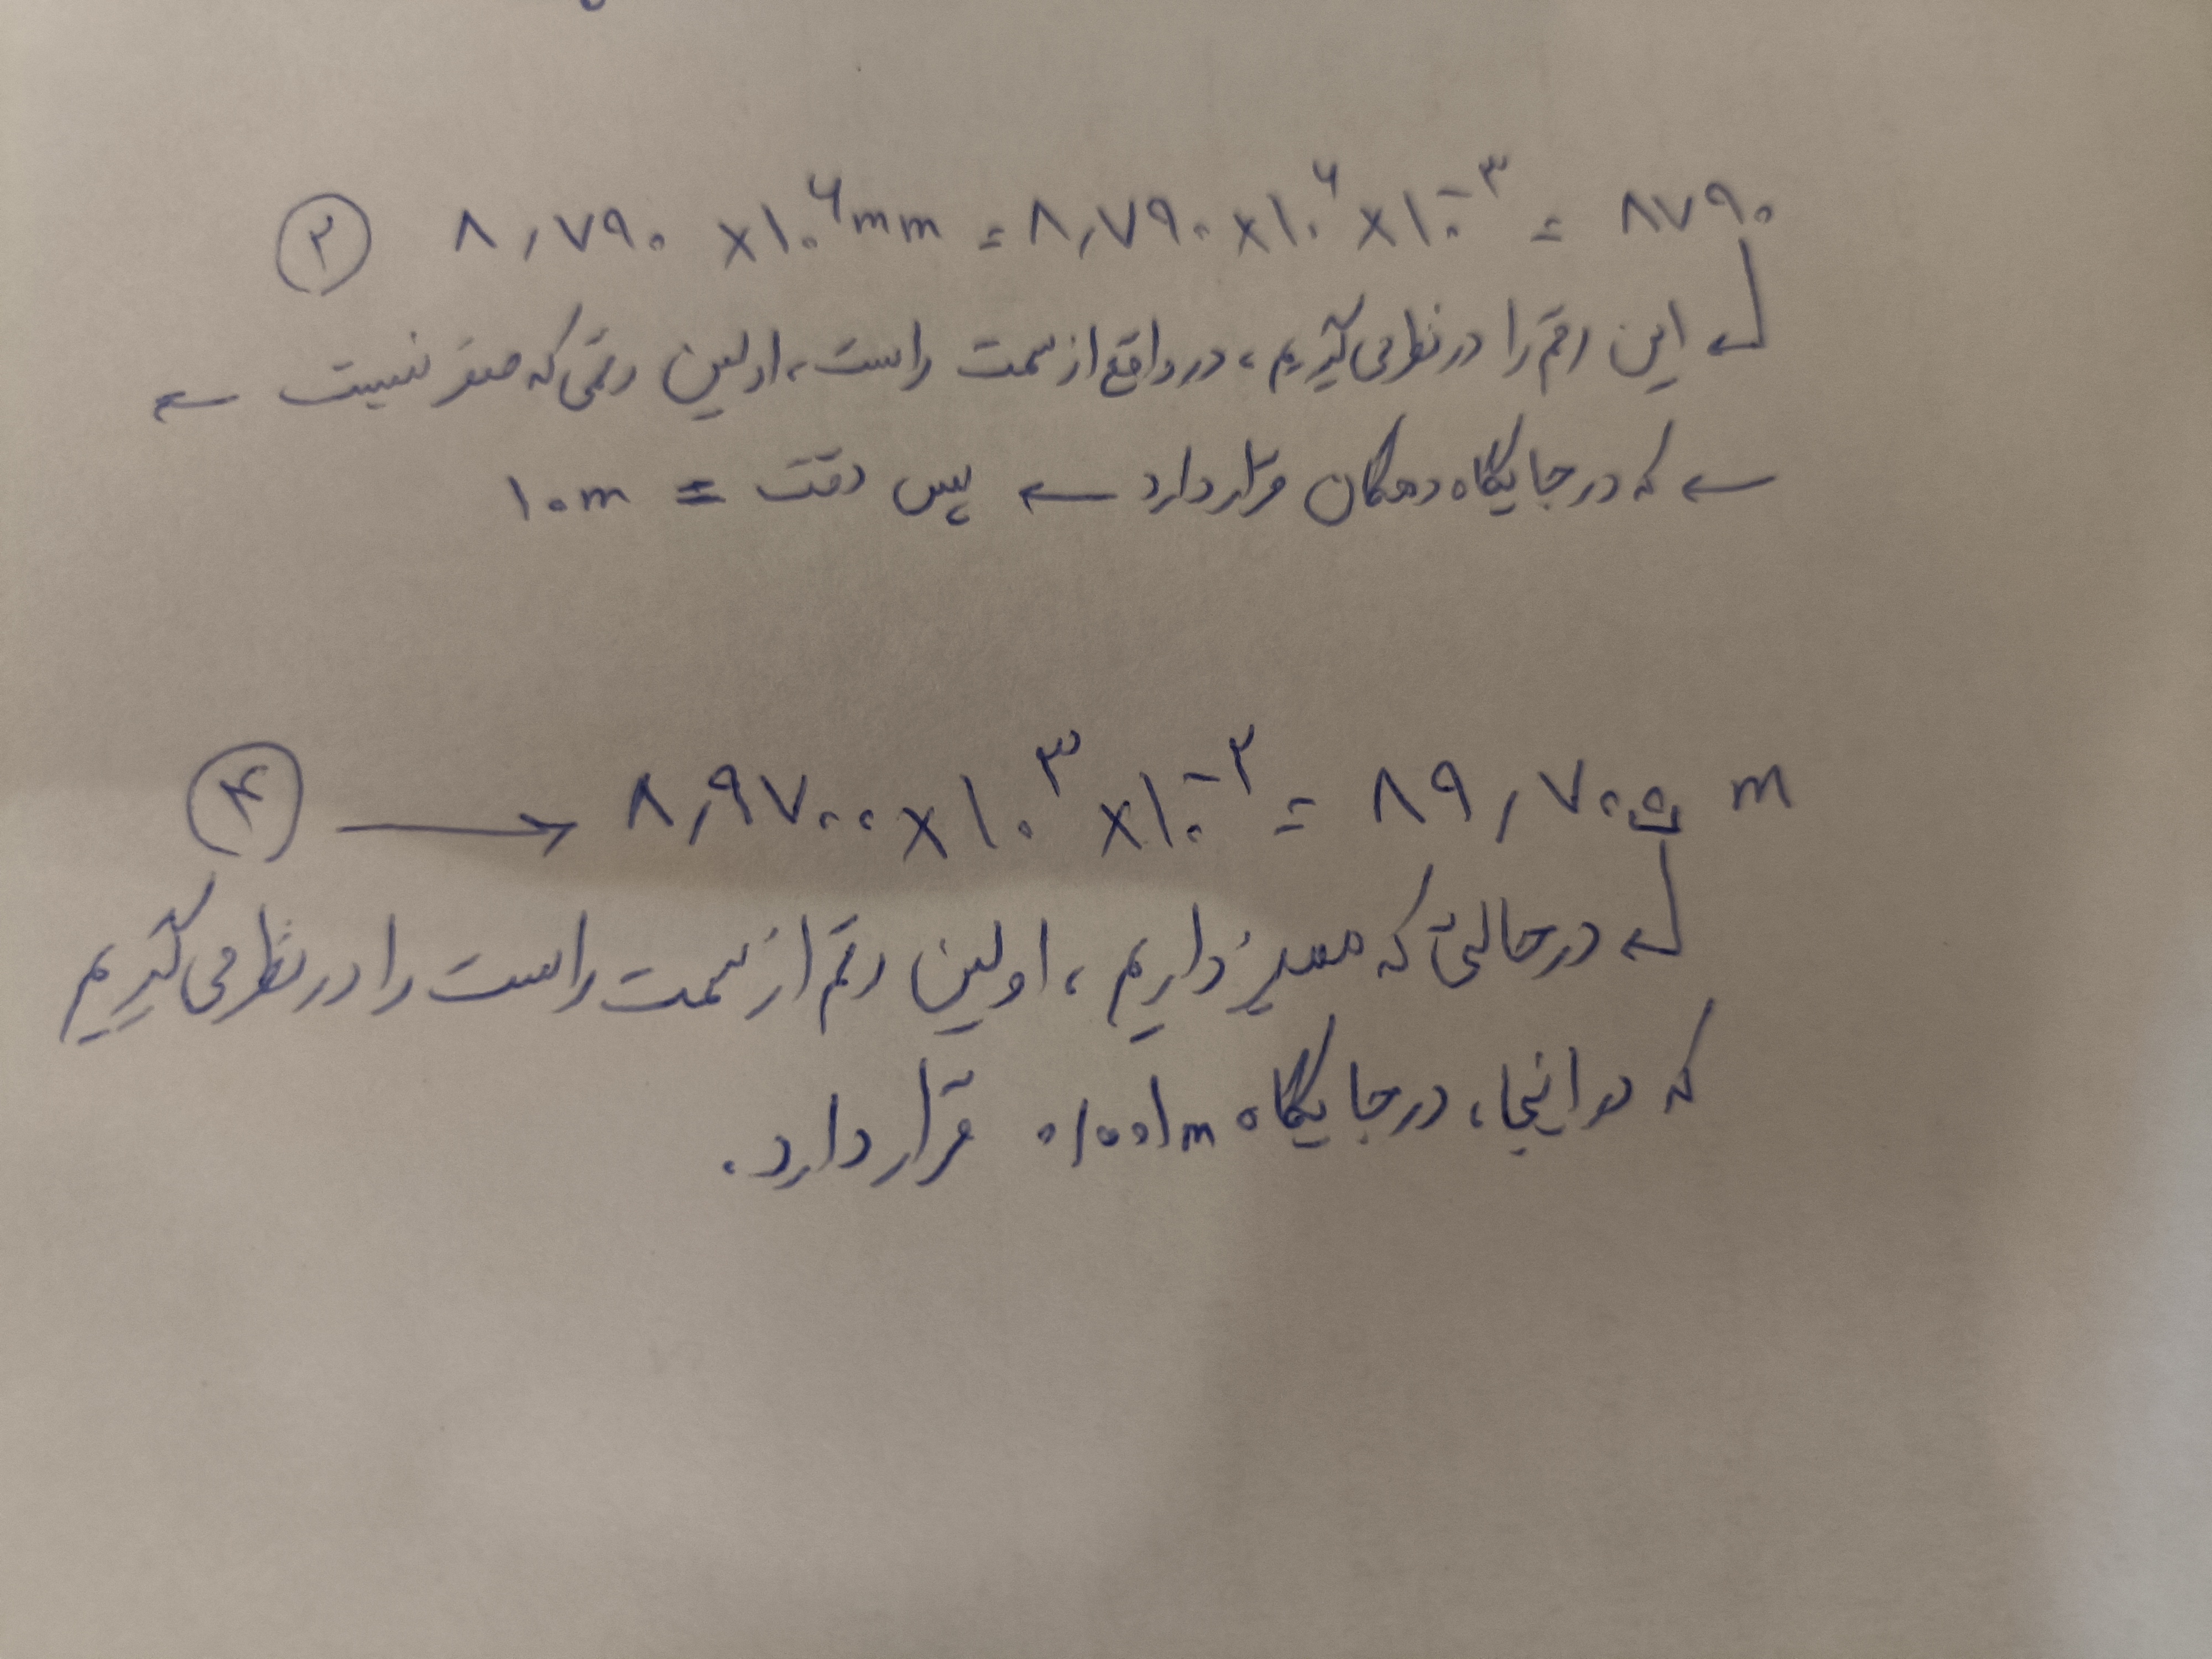 ② ۸٫۷۹۰ ×۱۰^۶ mm = ۸٫۷۹۰ ×۱۰^۶ ×۱۰^-۳ = ۸۷۹۰
↲ این رقم را در نظر می‌گیریم، در واقع از سمت راست، اولین رقمی که صفر نیست ←
← که در جایگاه دهگان قرار دارد ← پس دقت = ۱۰m
④ → ۸٫۹۷۰۰ ×۱۰^۳ ×۱۰^-۲ = ۸۹٫۷۰۰ m
↲ در حالتی که ممیز داریم، اولین رقم از سمت راست را در نظر می‌گیریم
که در اینجا، در جایگاه ۰٫۰۰۱m قرار دارد.